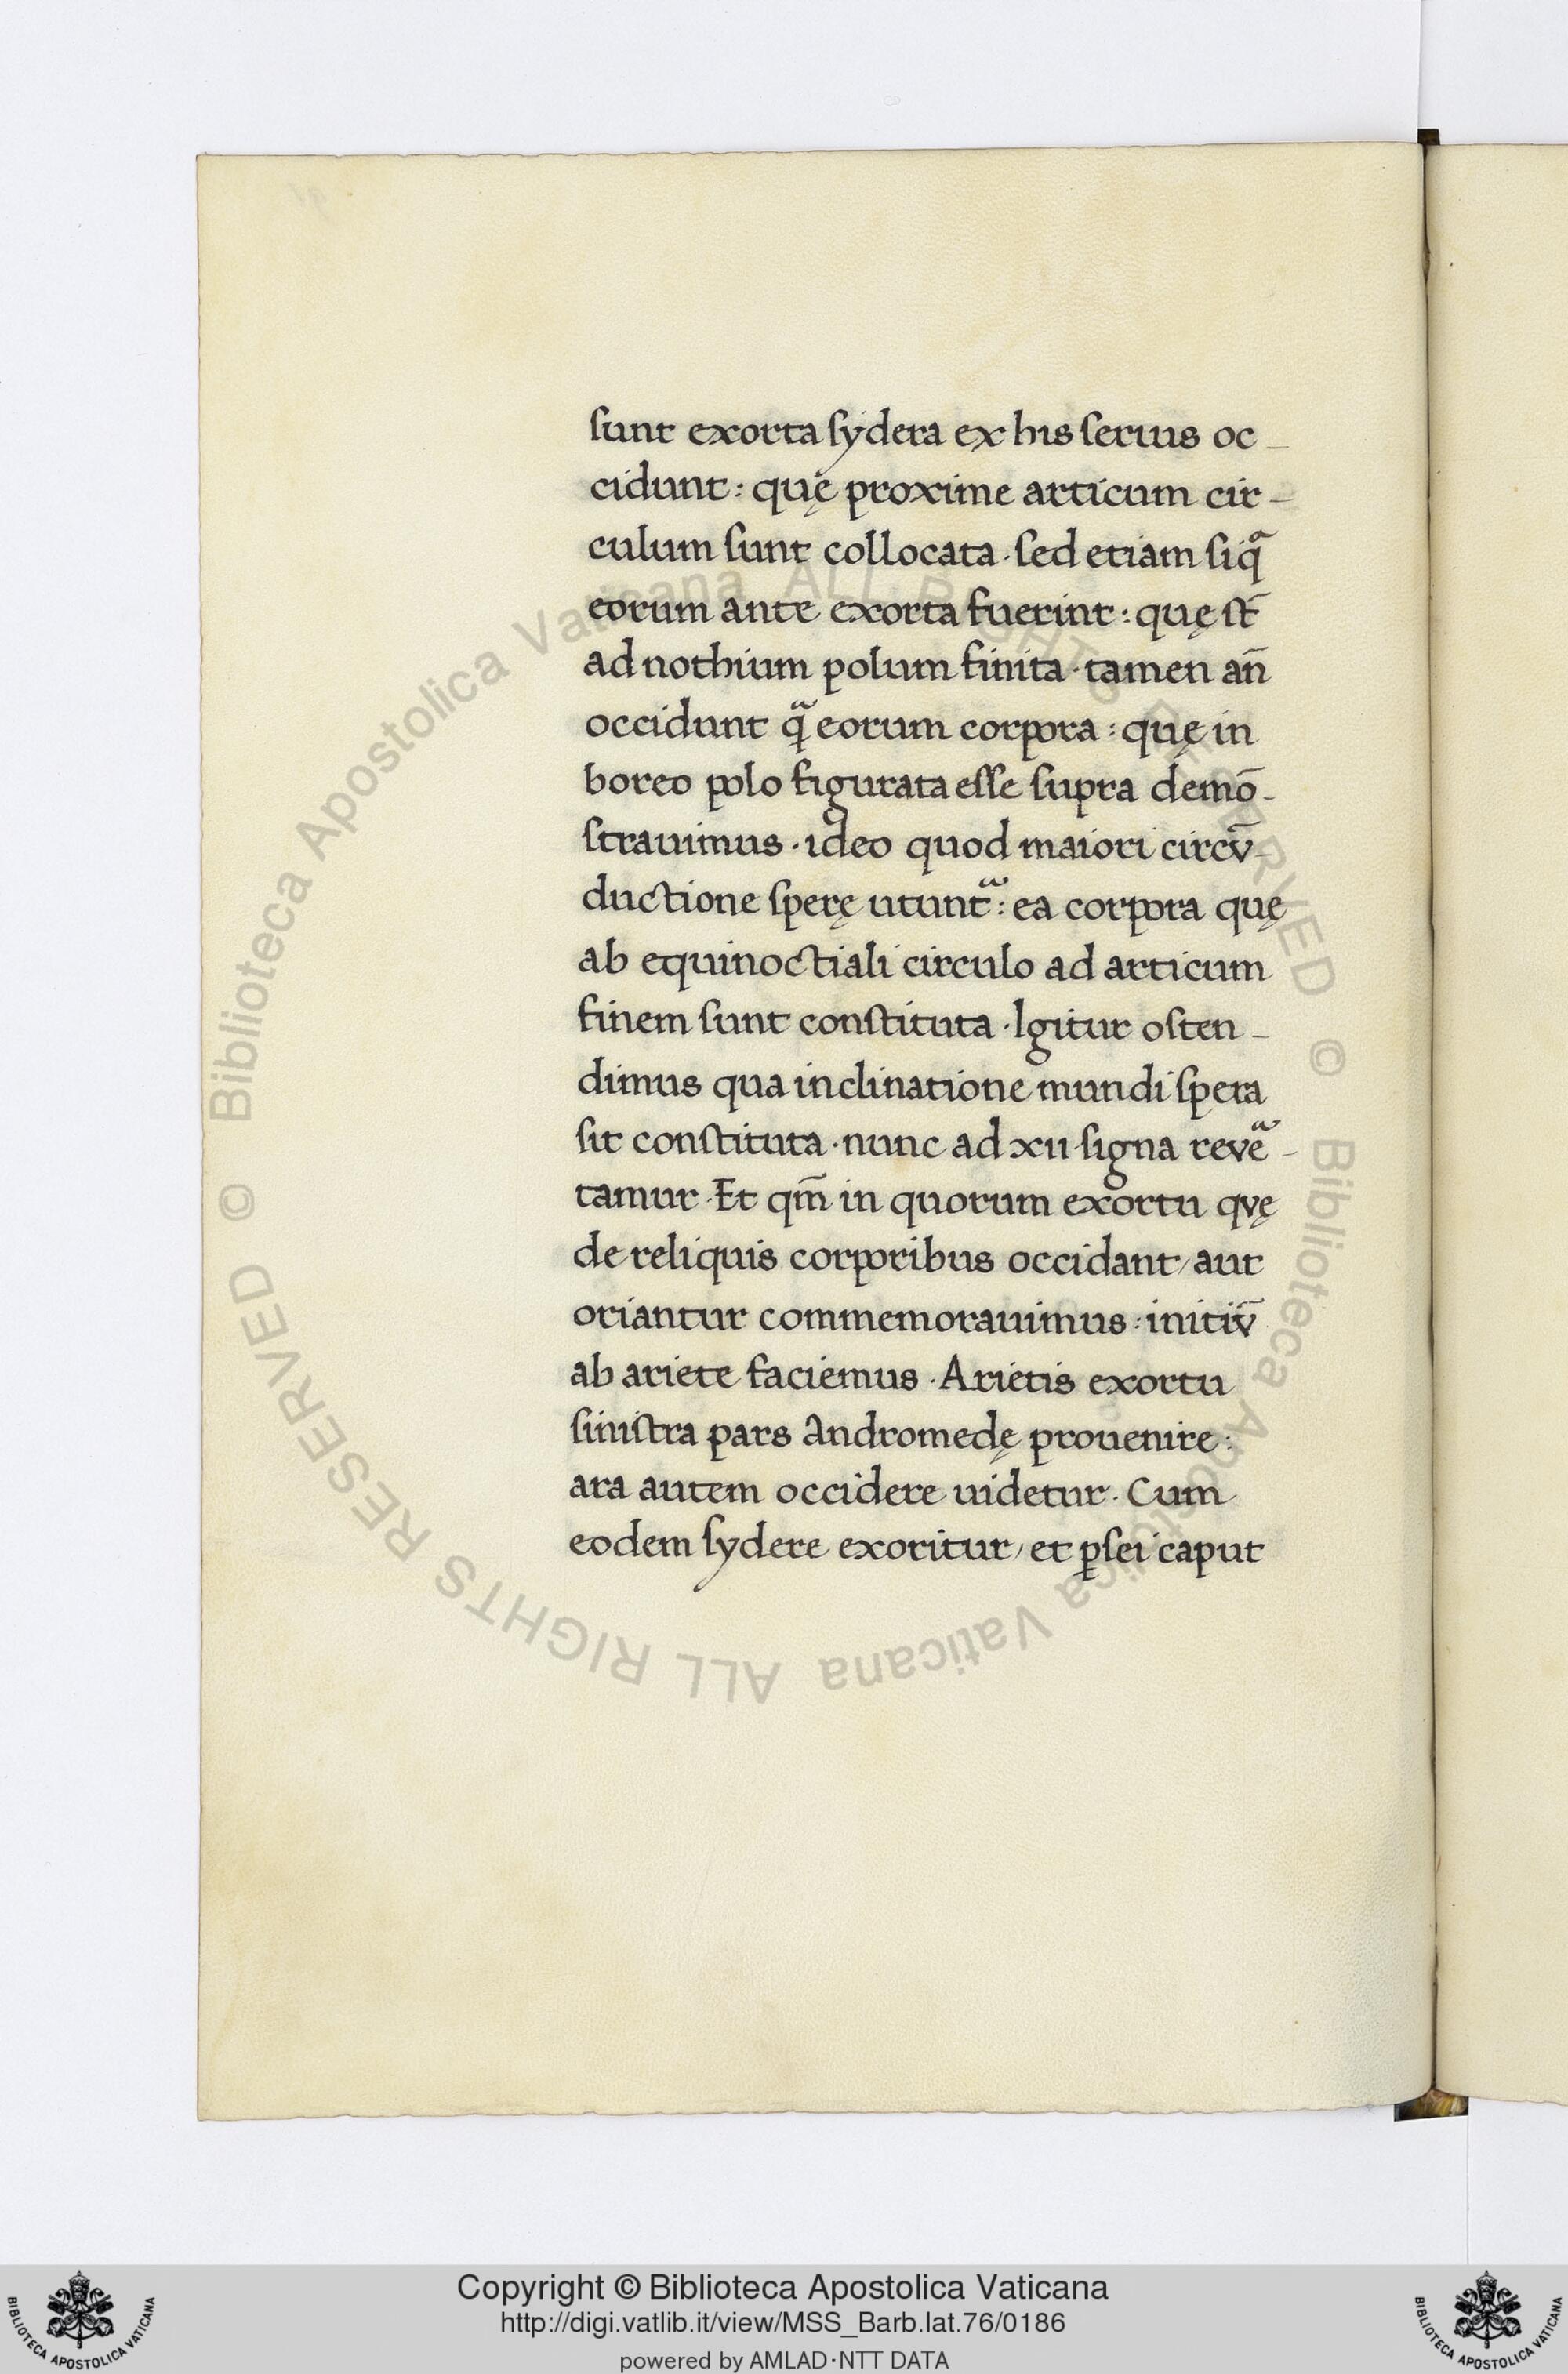 sunt exorta sydera ex his serius oc-
cidunt: quę proxime articum cir-
culum sunt collocata · sed etiam siqͣ
eorum ante exorta fuerint: quę st̄
ad nothium polum finita · tamen an̄
occidunt qͣ̄ eorum corpora: quę in
boreo polo figurata esse supra demō-
strauimus · ideo quod maiori circv̄-
ductione sperę utuntᷓ: ea corpora quę
ab equinoctiali circulo ad articum
finem sunt constituta · Igitur osten-
dimus qua inclinatione mundi spera
sit constituta · nunc ad xii signa reveᷓ-
tamur · Et qm̄ in quorum exortu qvę
de reliquis corporibus occidant / aut
oriantur commemorauimus: initiv̄
ab ariete faciemus · Arietis exortu
sinistra pars Andromedę prouenire:
ara autem occidere uidetur · Cum
eodem sydere exoritur / et ꝑsei caput
© Biblioteca Apostolica Vaticana ALL RIGHTS RESERVED © Biblioteca Apostolica Vaticana ALL RIGHTS RESERVED
Copyright © Biblioteca Apostolica Vaticana
http://digi.vatlib.it/view/MSS_Barb.lat.76/0186
powered by AMLAD·NTT DATA
BIBLIOTECA APOSTOLICA VATICANA
BIBLIOTECA APOSTOLICA VATICANA